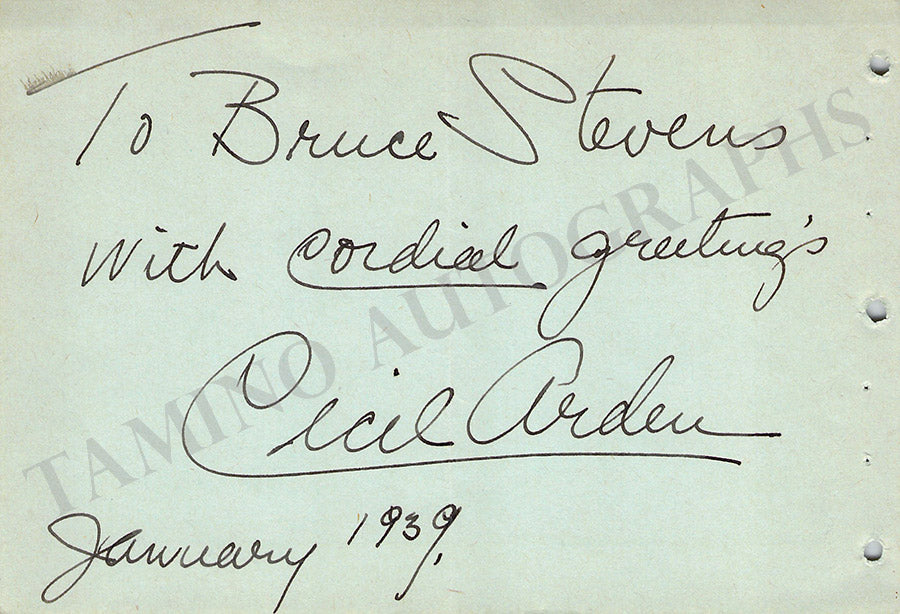 To Bruce Stevens
with cordial greeting's
Cecil Arden
January 1939.
TAMINO AUTOGRAPHS